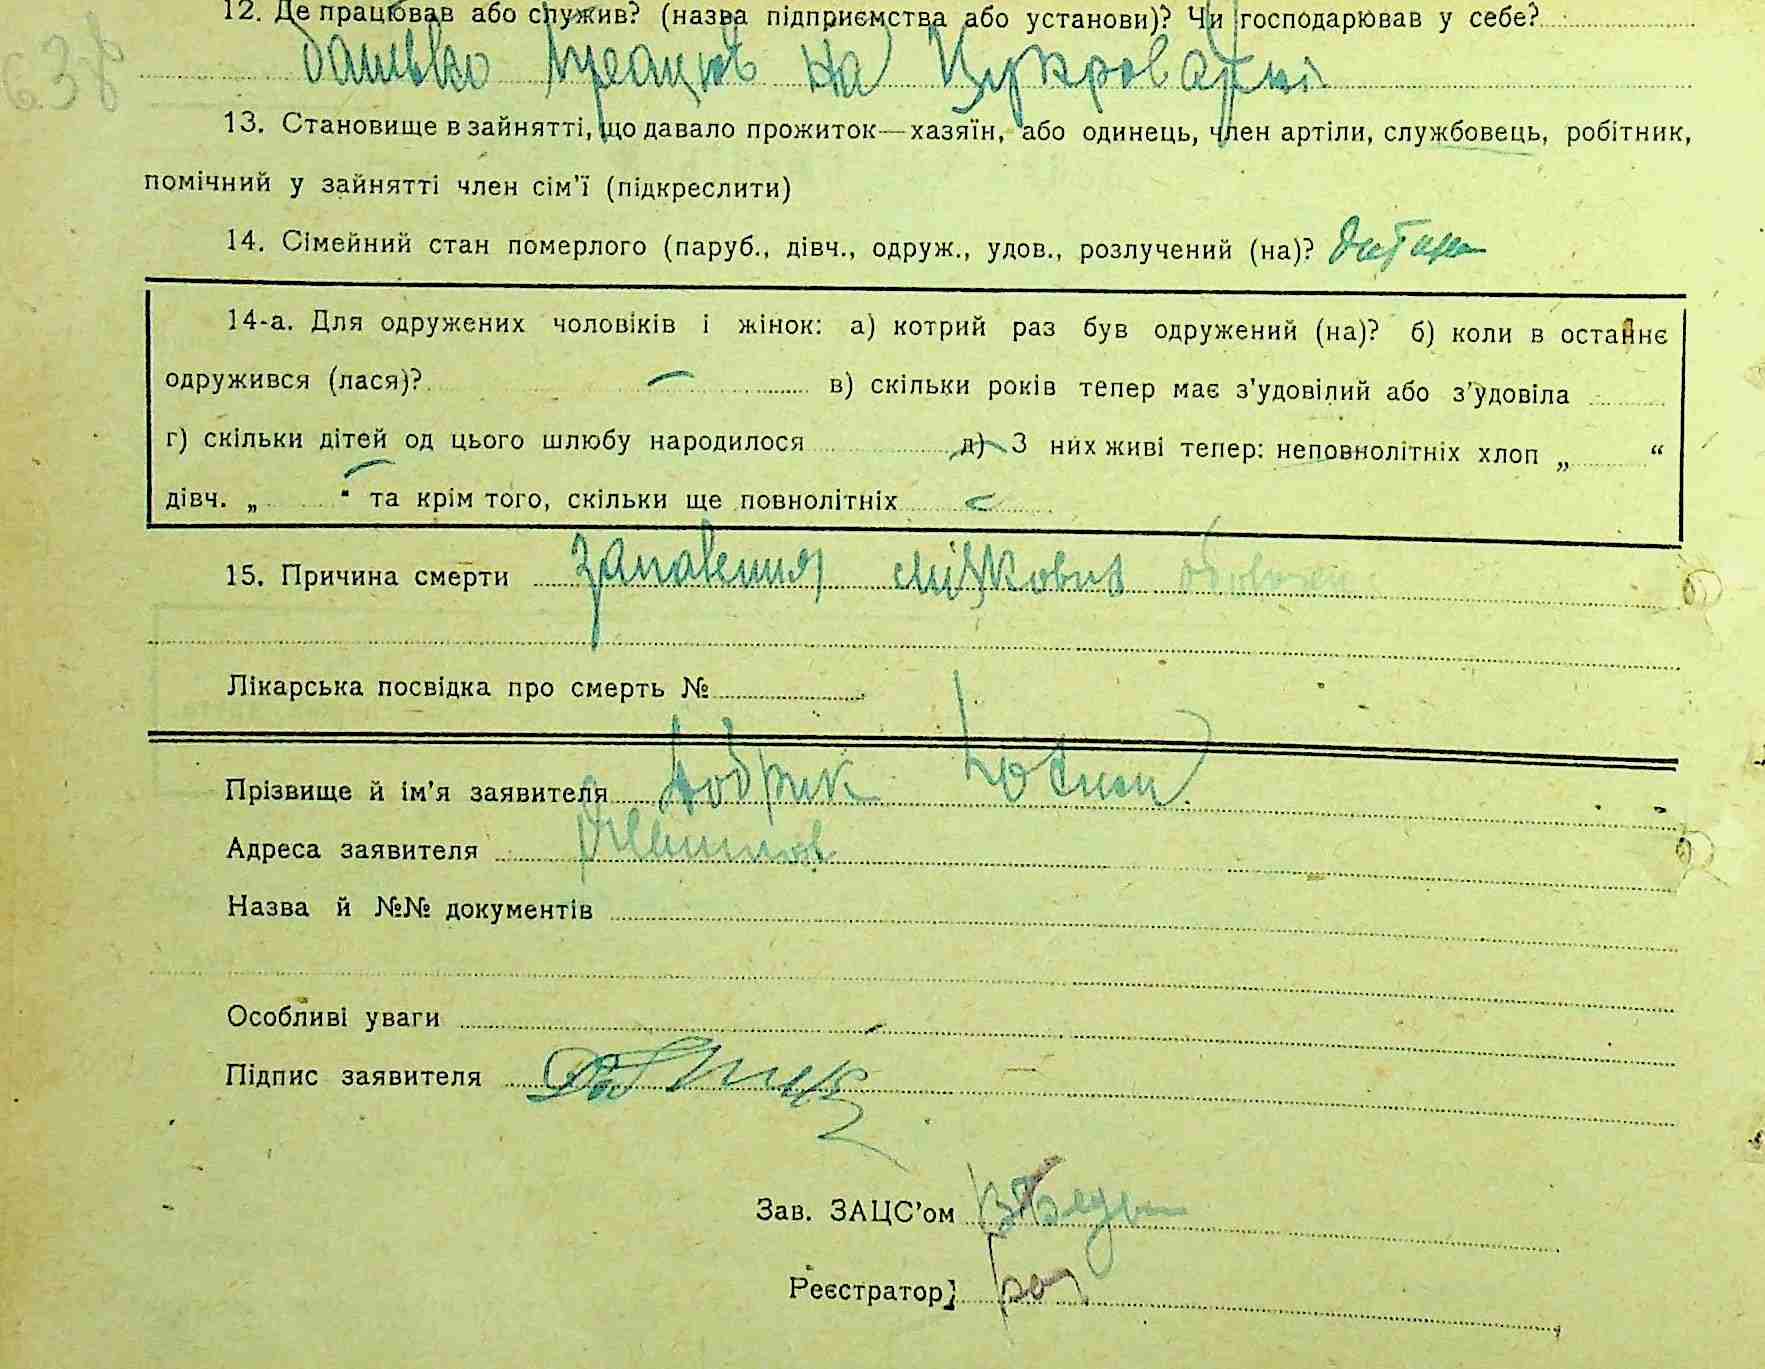 12. Де працював або служив? (назва підприємства або установи)? Чи господарював у себе?
батько працює на Цукроварні
638
13. Становище в зайнятті, що давало прожиток—хазяїн, або одинець, член артіли, службовець, робітник,
помічний у зайнятті член сім'ї (підкреслити)
14. Сімейний стан померлого (паруб., дівч., одруж., удов., розлучений (на)? дитина
14-а. Для одружених чоловіків і жінок: а) котрий раз був одружений (на)? б) коли в останнє
одружився (лася)? в) скільки років тепер має з'удовілий або з'удовіла
г) скільки дітей од цього шлюбу народилося д) З них живі тепер: неповнолітніх хлоп „ “
дівч. „ “ та крім того, скільки ще повнолітніх
15. Причина смерти запалення мізкових оболочек
Лікарська посвідка про смерть №
Прізвище й ім'я заявителя Добрик
Адреса заявителя
Назва й №№ документів
Особливі уваги
Підпис заявителя
Зав. ЗАЦС'ом
Реєстратор